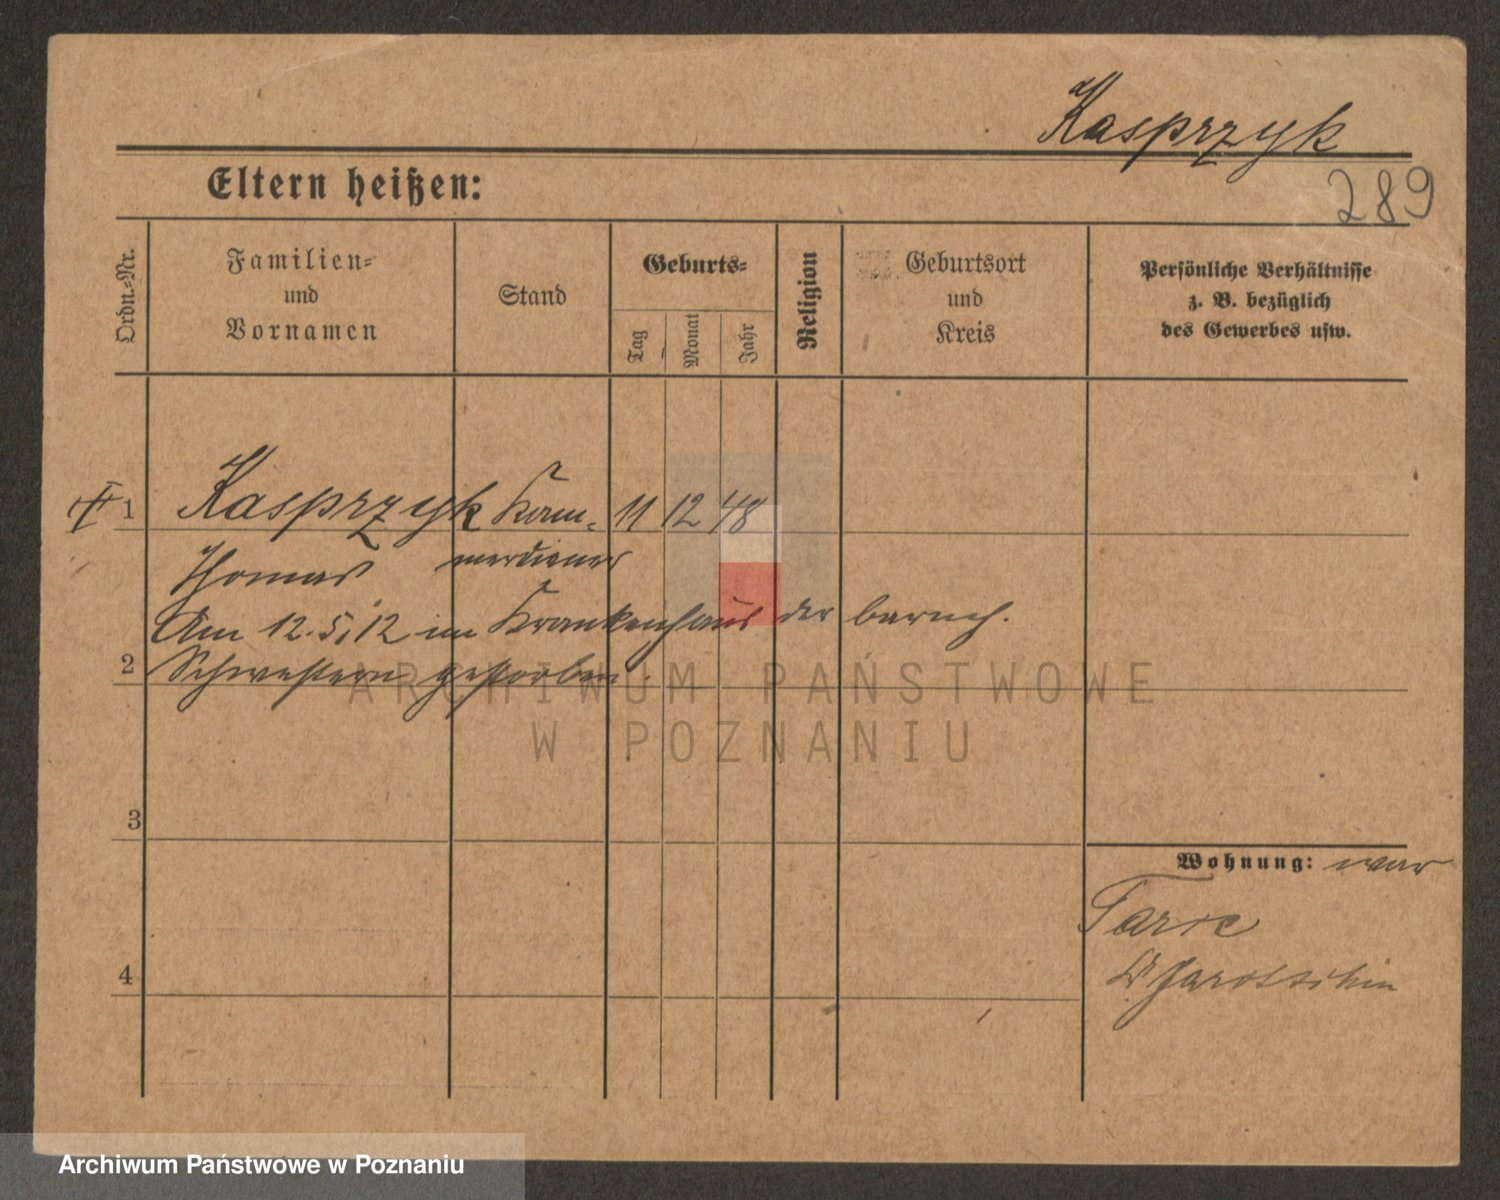 Kasprzyk
289
Eltern heißen:
Ordn.-Nr.
Familien-
und
Vornamen
Stand
Geburts-
Tag
Monat
Jahr
Religion
Geburtsort
und
Kreis
Persönliche Verhältnisse
z. B. bezüglich
des Gewerbes usw.
1 Kasprzyk Kam- 11 12 48
Thomas merdiener
Am 12.5.12 im Krankenhaus der barmh.
2 Schwestern gestorben.
ARCHIWUM PAŃSTWOWE
W POZNANIU
3
Wohnung: war
Tarce
Jarotschin
4
Archiwum Państwowe w Poznaniu